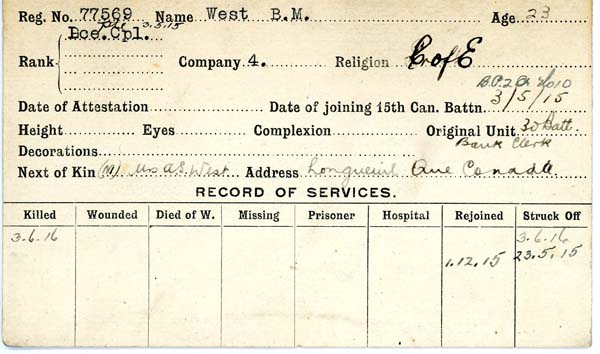 Reg. No. 77569 Name West B.M. Age 23
Pte 3.5.15
Lce.Cpl.
Rank Company 4. Religion C of E
B.P.2
Date of Attestation Date of joining 15th Can. Battn. 3/5/15
Height Eyes Complexion Original Unit 30 Batt.
Decorations Bank Clerk
Next of Kin (M) Mrs A.S. West Address Longueuil Que Canada
RECORD OF SERVICES.
Killed Wounded Died of W. Missing Prisoner Hospital Rejoined Struck Off
3.6.16 3.6.16
1.12.15 23.5.15